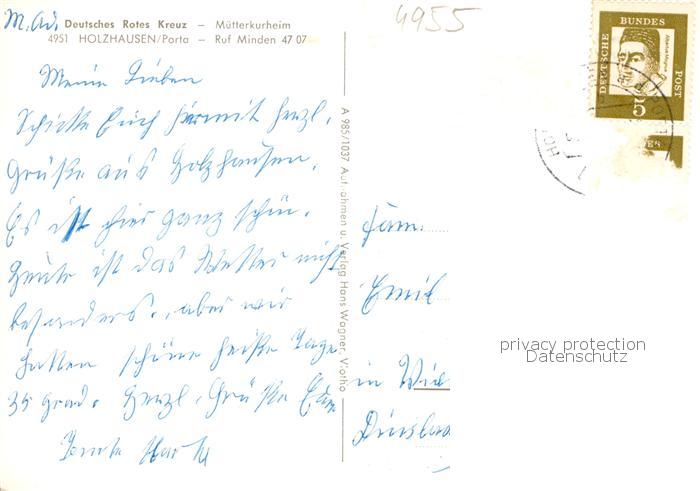 M. Ad. Deutsches Rotes Kreuz – Mütterkurheim
4951 HOLZHAUSEN/Porta – Ruf Minden 47 07
4955
Meine Lieben
Schicke Euch hiermit herzl.
Grüße aus Holzhausen.
Es ist hier ganz schön.
Heute ist das Wetter nicht
besonders, aber wir
hatten schöne heiße Tage
35 Grad. Herzl. Grüße Eure
Tante
A 985/1037 Aufnahmen u. Verlag Hans Wagner, Vlotho
DEUTSCHE BUNDES POST
Albertus Magnus
5
Fam.
Emil
in
Dinslak
privacy protection
Datenschutz